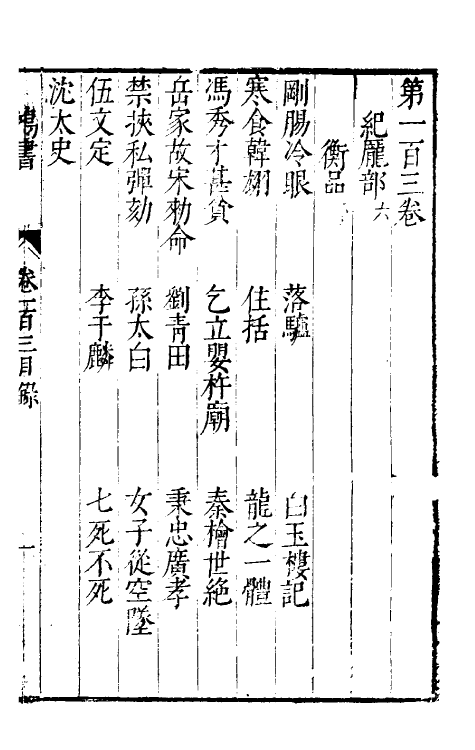 第一百三卷
紀龐部六
衡品
剛腸冷眼 落驢 白玉樓記
寒食韓翃 住括 龍之一體
馮秀才甚貧 乞立嬰杵廟 秦檜世絶
岳家故宋勑命 劉青田 秉忠廣孝
禁挾私彈劾 孫太白 女子從空墜
伍文定 李于麟 七死不死
沈太史
鴻書 卷一百三目錄 一